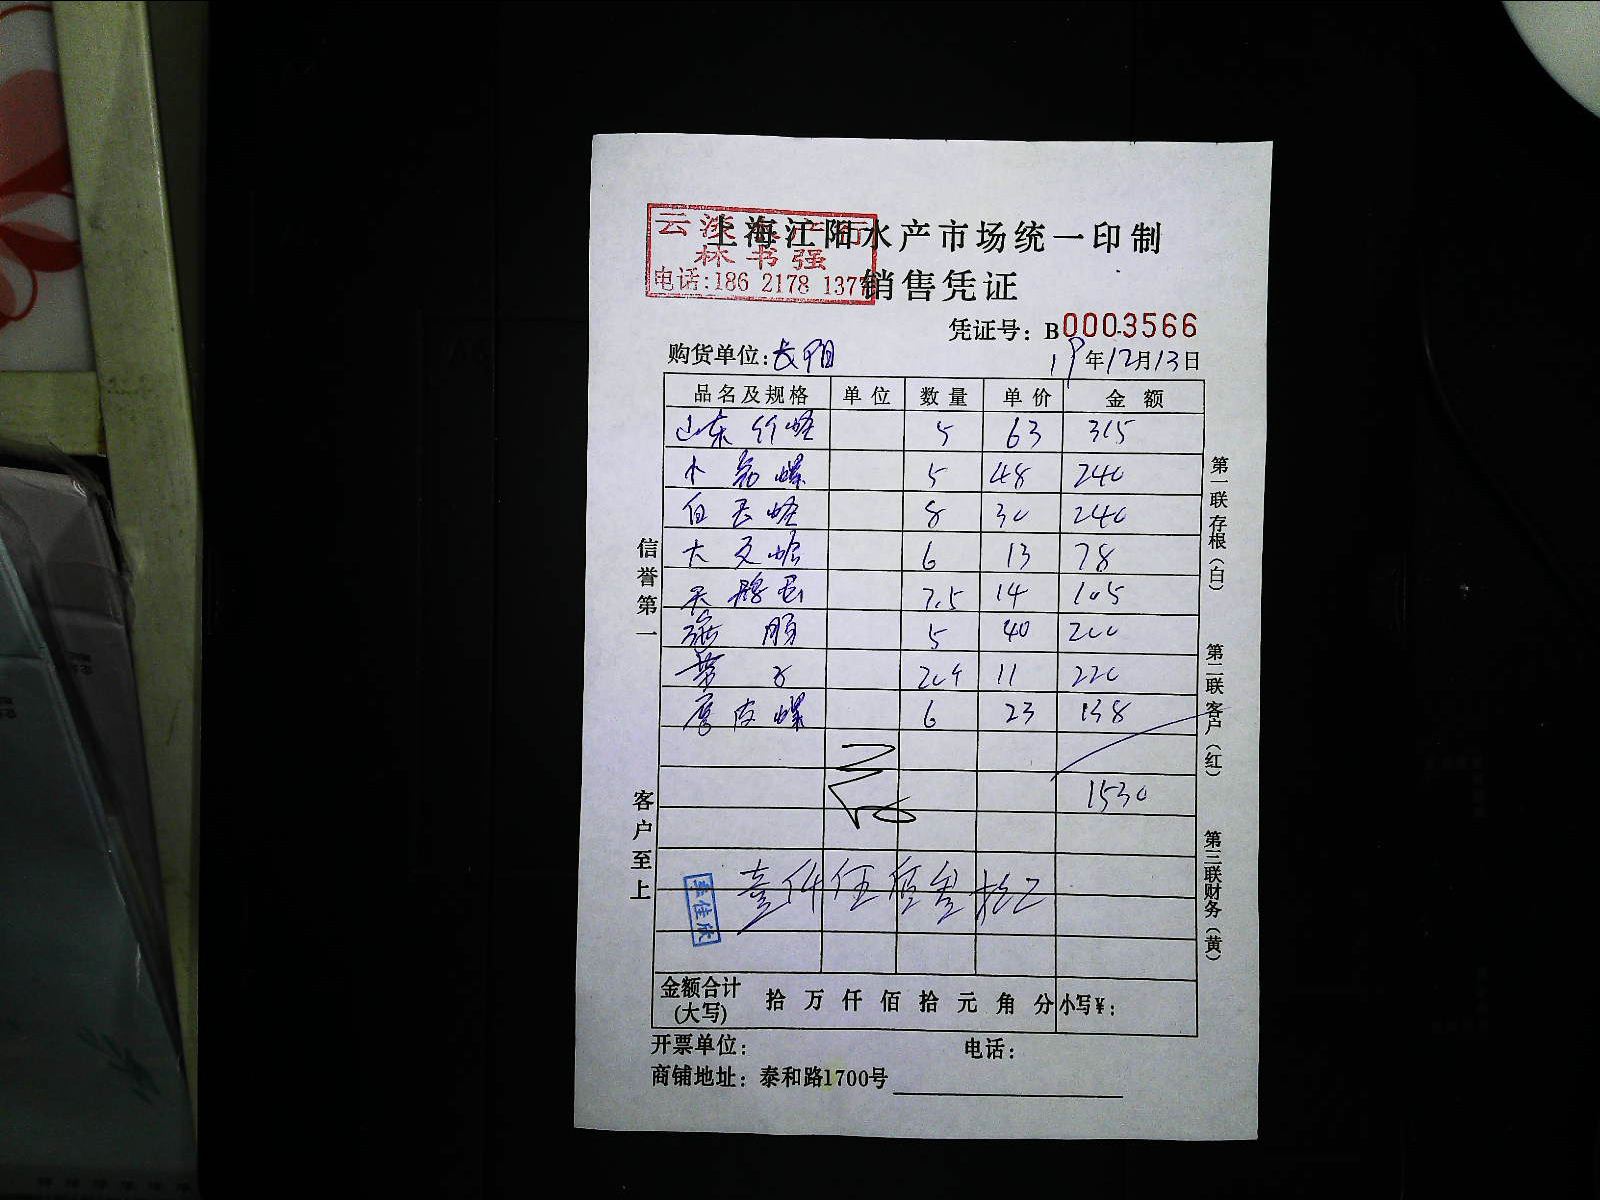 云淡水产行
林书强
电话:186 2178 137
上海江阳水产市场统一印制
销售凭证
凭证号：B0003566
购货单位：长阳
19年12月13日
品名及规格 单位 数量 单价 金额
山东竹蛏 5 63 315
小花螺 5 48 240
白玉蛏 8 30 240
大文蛤 6 13 78
7.5 14 105
5 40 200
11 220
螺 6 23 138
1530
壹仟伍佰叁拾正
李佳欣
金额合计(大写) 拾 万 仟 佰 拾 元 角 分 小写￥：
开票单位： 电话：
商铺地址：泰和路1700号
信誉第一
客户至上
第一联存根（白）
第二联客户（红）
第三联财务（黄）